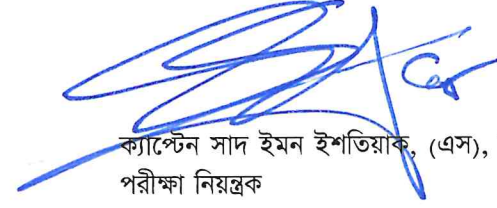 ক্যাপ্টেন সাদ ইমন ইশতিয়াক, (এস),
পরীক্ষা নিয়ন্ত্রক